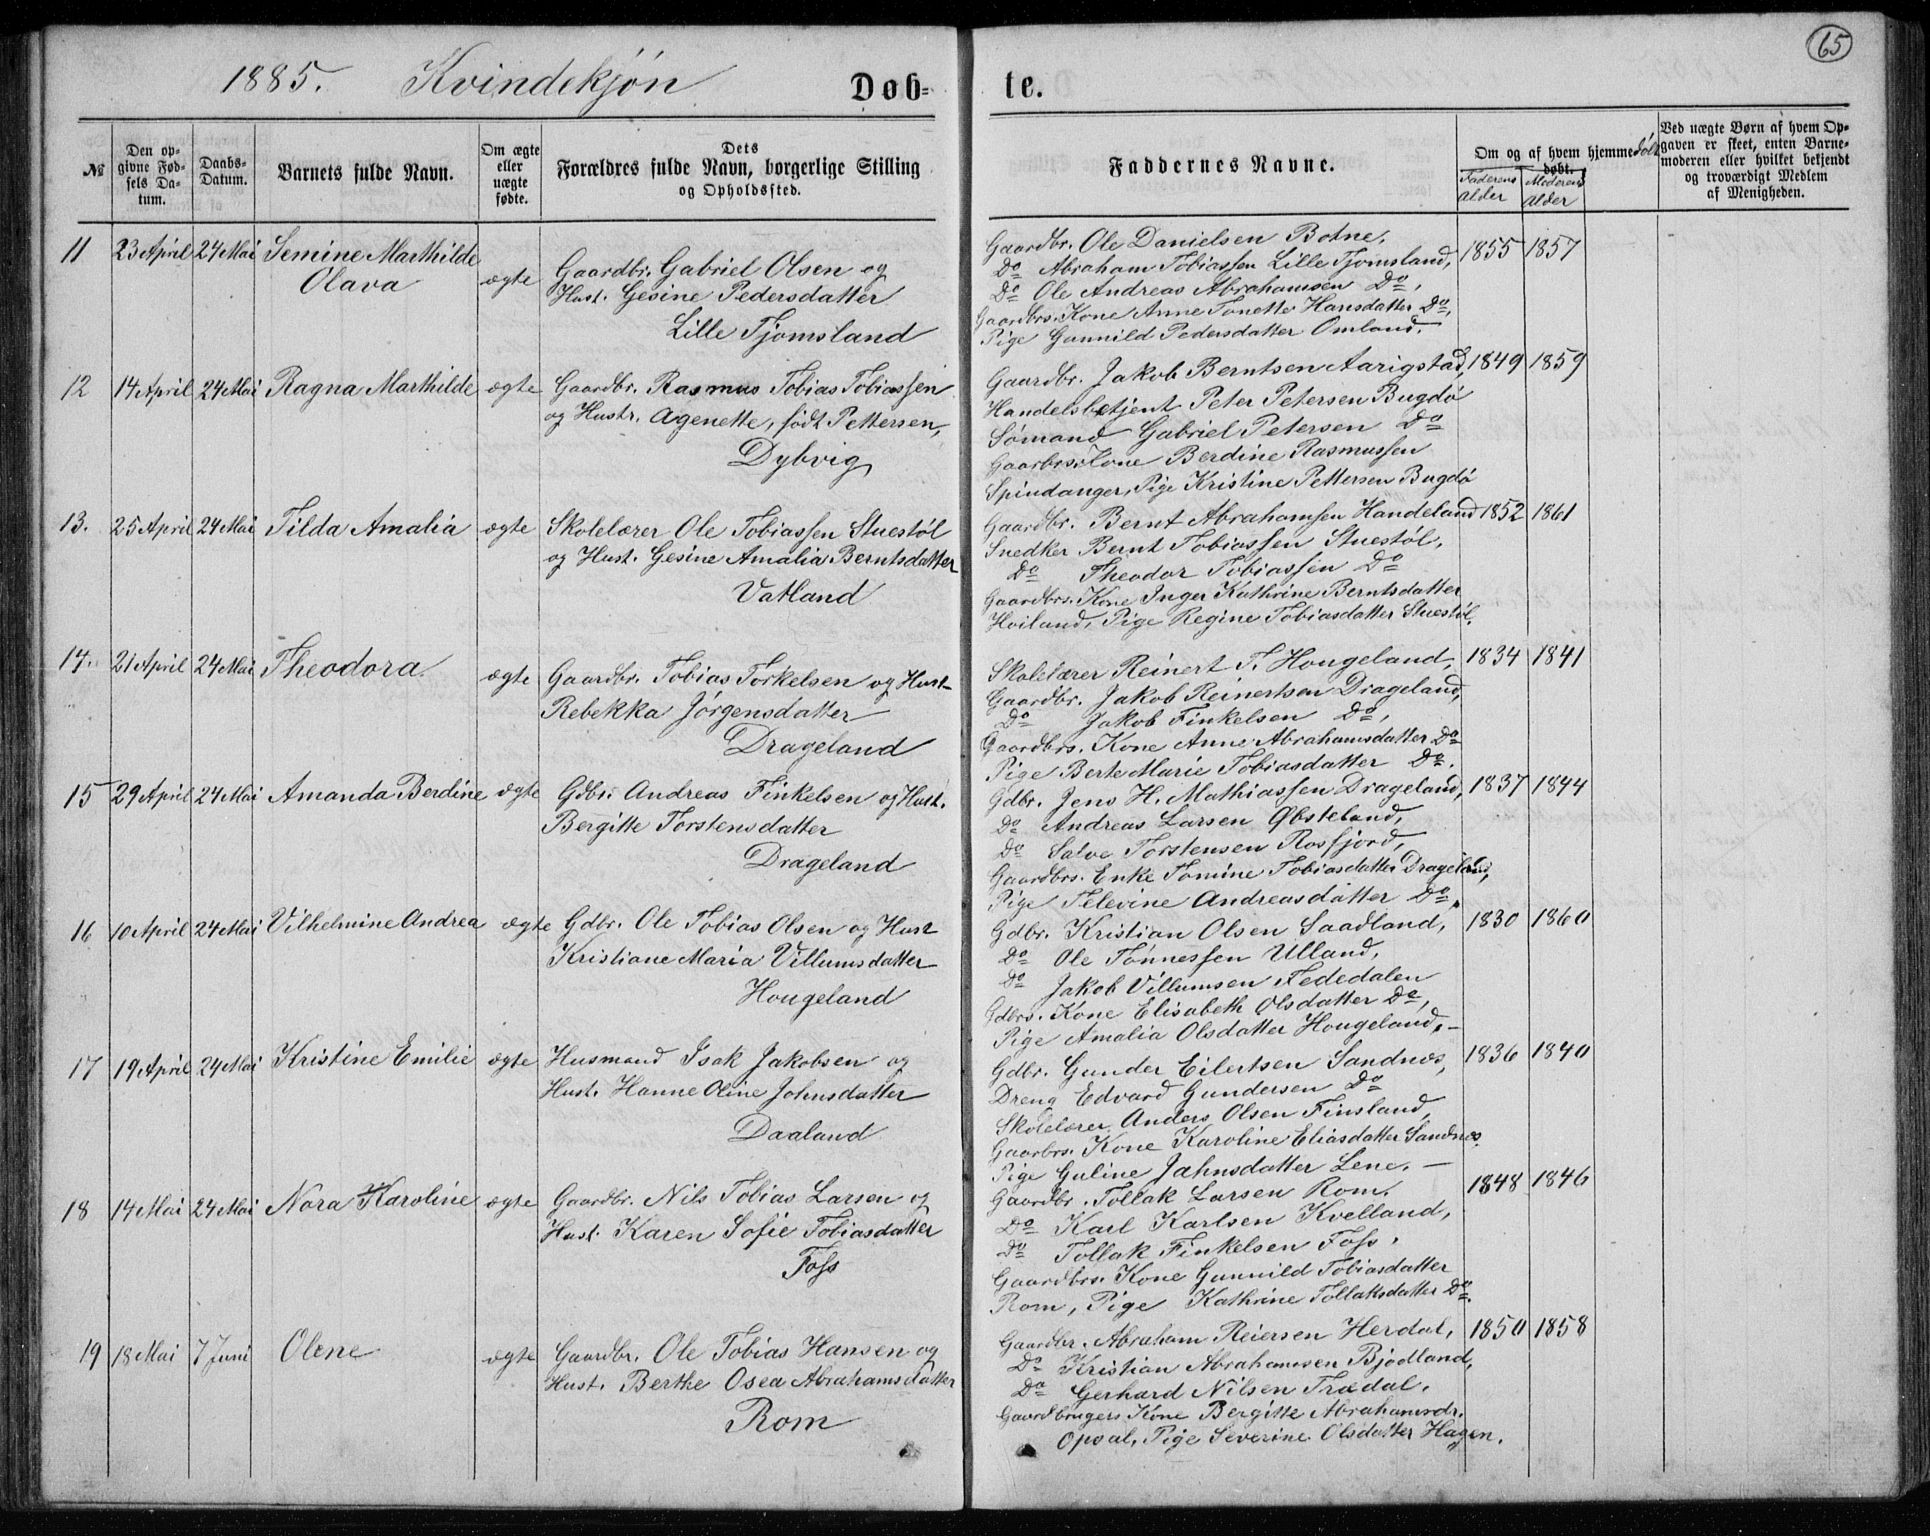 65
1885. Kvindekjøn Døb=
te.
№
Den op-
givne Fød-
sels Da-
tum.
Daabs-
Datum.
Barnets fulde Navn.
Om ægte
eller
uægte
fødte.
Dets
Forældres fulde Navn, borgerlige Stilling
og Opholdssted.
Faddernes Navne.
Om og af hvem hjemme-
døbt.
Faderens
Alder
Moderens
Alder
Ved uægte Børn af hvem Op-
gaven er skeet, enten Barne-
moderen eller hvilket bekjendt
og troværdigt Medlem
af Menigheden.
11 23 April 24 Mai Semine Marthilde
Olava
ægte Gaardbr. Gabriel Olsen og
Hust. Gesine Pedersdatter
Lille Tjomsland
Gaardbr. Ole Danielsen Botne, 1855 1857
Do Abraham Tobiassen Lille Tjomsland,
Do Ole Andreas Abrahamsen Do,
Gaardbrs. Kone Anne Tonette Hansdatter Do,
Pige Gunnild Pedersdatter Omland.
12 14 April 24 Mai Ragna Marthilde ægte Gaardbr. Rasmus Tobias Tobiassen
og Hustr. Agenette, født Pettersen,
Dybvig
Gaardbr. Jakob Berntsen Aarigstad, 1849 1859
Handelsbetjent Peter Petersen Bugdø
Sømand Gabriel Petersen Do
Gaarbrs. Kone Berdine Rasmussen
Spindanger, Pige Kristine Pettersen Bugdø
13. 25 April 24 Mai Tilda Amalia ægte Skolelærer Ole Tobiassen Stuestøl
og Hust. Gesine Amalia Berntsdatter
Vatland
Gaardbr. Bernt Abrahamsen Handeland 1852 1861
Snedker Bernt Tobiassen Stuestøl,
Do Theodor Tobiassen Do
Gaardbrs. Kone Inger Kathrine Berntsdatter
Hoiland, Pige Regine Tobiasdatter Stuestøl.
14. 21 April 24 Mai Theodora ægte Gaardbr. Tobias Torkelsen og Hust
Rebekka Jørgensdatter
Drageland
Skolelærer Reinert T. Hougeland, 1834 1841
Gaardbr. Jakob Reinertsen Drageland,
Do Jakob Finkelsen Do,
Gaardbrs. Kone Anne Abrahamsdatter Do
Pige Berte Marie Tobiasdatter Do.
15 29 April 24 Mai Amanda Berdine ægte Gdbr. Andreas Finkelsen og Hust.
Bergitte Torstensdatter
Drageland
Gdbr. Jens H. Mathiassen Drageland, 1837 1844
Do Andreas Larsen Øbsteland,
Do Salve Torstensen Rosfjord,
Gaardbrs. Enke Tomine Tobiasdatter Drageland,
Pige Televine Andreasdatter Do.
16 10 April 24 Mai Vilhelmine Andrea ægte Gdbr. Ole Tobias Olsen og Hust
Kristiane Maria Villumsdatter
Hougeland
Gdbr. Kristian Olsen Saadland, 1830 1860
Do Ole Tønnessen Ulland,
Do Jakob Villumsen Fededalen
Gdbrs. Kone Elisabeth Olsdatter Do,
Pige Amalia Olsdatter Hougeland.
17 19 April 24 Mai Kristine Emilie ægte Husmand Isak Jakobsen og
Hust. Hanne Oline Johnsdatter
Daaland
Gdbr. Gunder Eilertsen Sandnes, 1836 1840
Dreng Edvard Gundersen Do
Skolelærer Anders Olsen Finsland,
Gaarbrs. Kone Karoline Eliasdatter Sandnes.
Pige Guline Jahnsdatter Lene.
18 14 Mai 24 Mai Nora Karoline ægte Gaardbr. Nils Tobias Larsen og
Hust. Karen Sofie Tobiasdatter
Foss
Gaardbr. Tollak Larsen Rom. 1848 1846
Do Karl Karlsen Kvelland,
Do Tollak Finkelsen Foss.
Gaardbrs. Kone Gunnild Tobiasdatter
Rom, Pige Kathrine Tollaksdatter Do.
19 18 Mai 7 Juni Olene ægte Gaardbr. Ole Tobias Hansen og
Hust. Berthe Osea Abrahamsdatter
Rom
Gaardbr. Abraham Reiersen Herdal, 1850 1858
Do Kristian Abrahamsen Bjodland,
Do Gerhard Nilsen Trædal.
Gaardbrugers Kone Bergitte Abrahamsdr.
Opsal, Pige Severine Olsdatter Hagen.